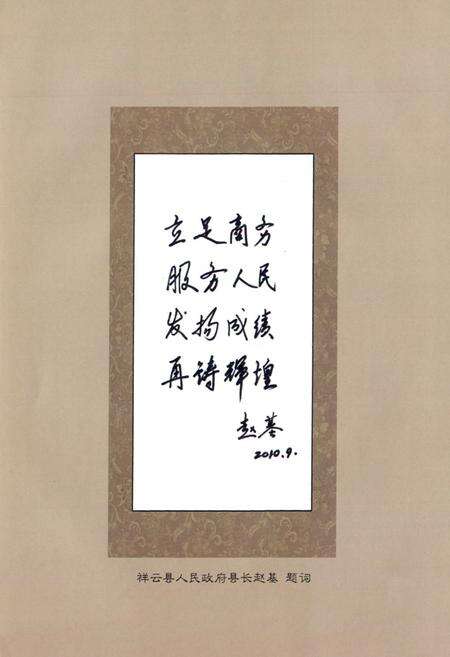 立足商务
服务人民
发扬成绩
再铸辉煌
赵基
2010.9.
祥云县人民政府县长赵基 题词